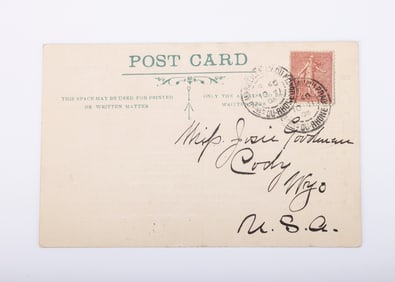 POST CARD
THIS SPACE MAY BE USED FOR PRINTED
OR WRITTEN MATTER
ONLY THE
Miss Josie Goodman
Cody
Wyo
U.S.A.